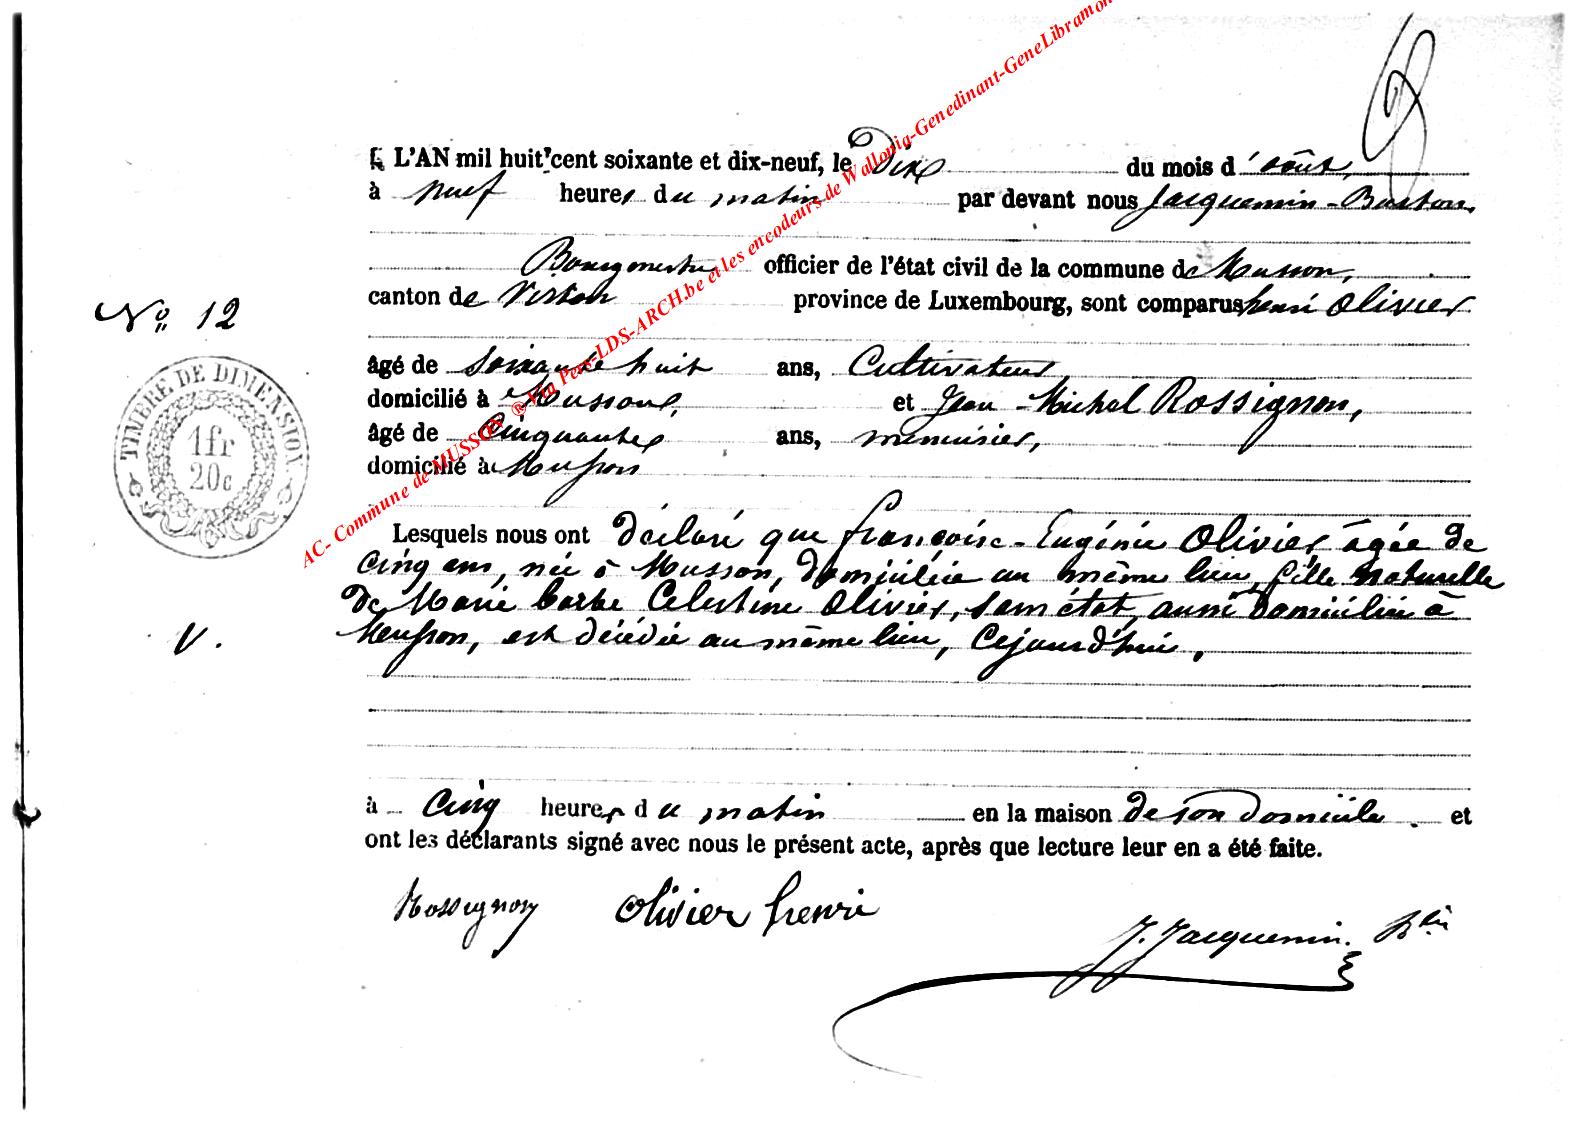 L'AN mil huit cent soixante et dix-neuf, le Dix du mois d'août,
à neuf heures du matin par devant nous Jacquemin-Buston,
Bourgmestre officier de l'état civil de la commune de Musson,
canton de Virton province de Luxembourg, sont comparus henri Olivier
No 12
âgé de soixante huit ans, Cultivateur
domicilié à Musson, et Jean-Michel Rossignon,
âgé de cinquante ans, menuisier,
domicilié à Musson
TIMBRE DE DIMENSION.
1fr
20c
Lesquels nous ont déclaré que françoise-Eugénie Olivier, âgée de
cinq ans, née à Musson, domiciliée au même lieu, fille naturelle
de Marie barbe Celestine Olivier, sans état, aussi domiciliée à
Musson, est décédée au même lieu, Cejourd'hui,
V.
à cinq heures du matin en la maison de son domicile et
ont les déclarants signé avec nous le présent acte, après que lecture leur en a été faite.
Rossignon Olivier henri
J. Jacquemin.
AC- Commune de MUSSON ® Via Pere-LDS-ARCH.be et les encodeurs de Wallonia-Genedinant-GeneLibramon